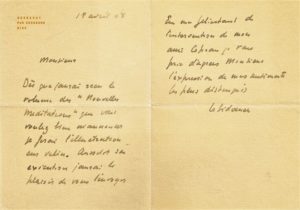 19 avril 58
Monsieur
Dès que j'aurai reçu le
volume des "Nouvelles
Méditations" que vous
voulez bien m'annoncer
je ferai l'illustration
Aussitôt son
exécution j'aurai le
plaisir de vous l'envoyer
En me félicitant de
l'intervention de mon
ami je vous
prie d'agréer Monsieur
l'expression de mes sentiments
les plus distingués